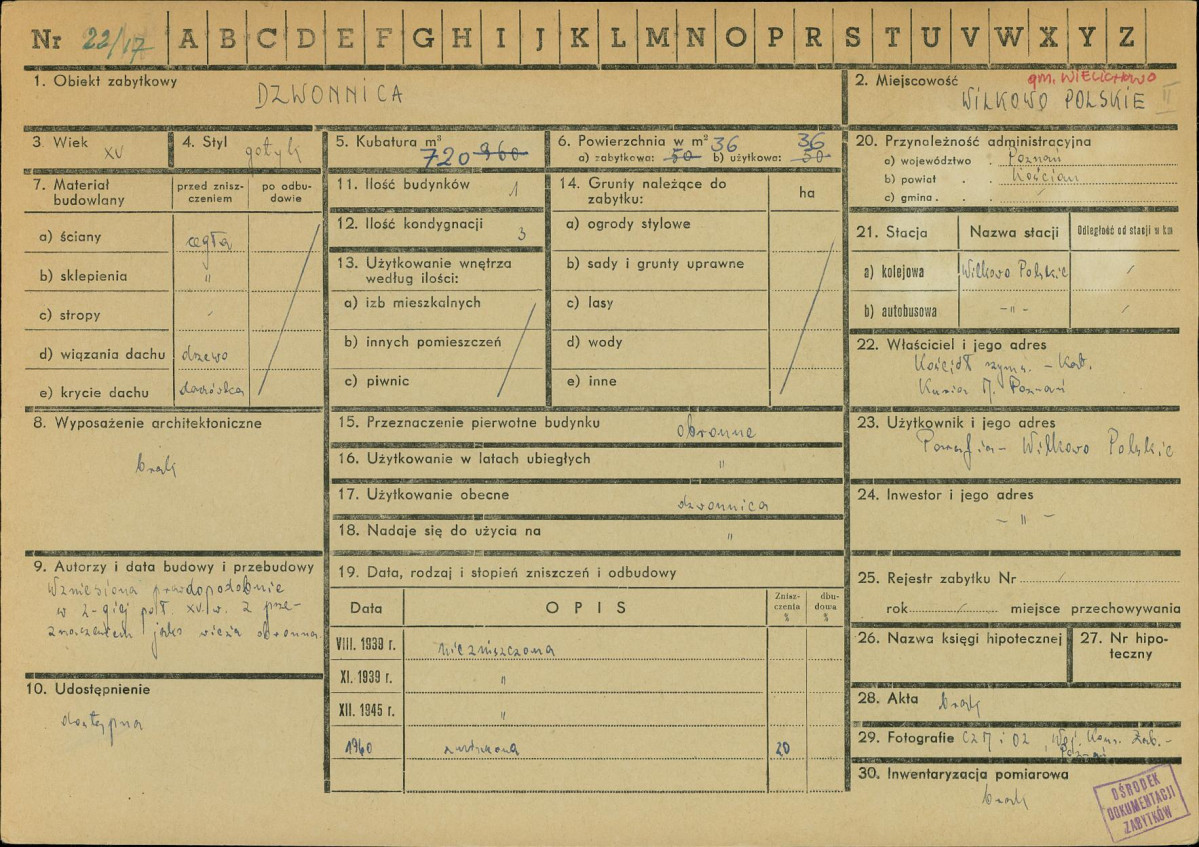 Nr 22/17 A B C D E F G H I J K L M N O P R S T U V W X Y Z
1. Obiekt zabytkowy
DZWONNICA
2. Miejscowość gm. WIELICHOWO
WILKOWO POLSKIE II
3. Wiek XV
4. Styl gotyk
5. Kubatura m³
720 960
6. Powierzchnia w m² 36 36
a) zabytkowa: 50 b) użytkowa: 50
20. Przynależność administracyjna
a) województwo . Poznań
b) powiat . . Kościan
c) gmina . . . /
7. Materiał budowlany
przed zniszczeniem
po odbudowie
a) ściany cegła
b) sklepienia "
c) stropy
d) wiązania dachu drzewo
e) krycie dachu dachówka
11. Ilość budynków 1
12. Ilość kondygnacji 3
13. Użytkowanie wnętrza
według ilości:
a) izb mieszkalnych
b) innych pomieszczeń
c) piwnic
14. Grunty należące do
zabytku:
ha
a) ogrody stylowe
b) sady i grunty uprawne
c) lasy
d) wody
e) inne
21. Stacja Nazwa stacji Odległość od stacji w km
a) kolejowa Wilkowo Polskie /
b) autobusowa -"- /
22. Właściciel i jego adres
Kościół rzym. - Kat.
Kuria M. Poznań
8. Wyposażenie architektoniczne
brak
15. Przeznaczenie pierwotne budynku obronne
16. Użytkowanie w latach ubiegłych "
17. Użytkowanie obecne dzwonnica
18. Nadaje się do użycia na "
23. Użytkownik i jego adres
Parafia - Wilkowo Polskie
24. Inwestor i jego adres
- " -
9. Autorzy i data budowy i przebudowy
Wzniesiona prawdopodobnie
w 2-giej poł. XV. w. z prze-
znaczeniem jako wieża obronna.
10. Udostępnienie
dostępna
19. Data, rodzaj i stopień zniszczeń i odbudowy
Data OPIS Zniszczenia % dbudowa %
VIII. 1939 r. niezniszczona
XI. 1939 r. "
XII. 1945 r. "
1960 20
25. Rejestr zabytku Nr /
rok / miejsce przechowywania
26. Nazwa księgi hipotecznej
27. Nr hipoteczny
28. Akta brak
29. Fotografie CZM i OZ, Woj. Kons. Zab. -
Poznań
30. Inwentaryzacja pomiarowa
brak
OŚRODEK
DOKUMENTACJI
ZABYTKÓW